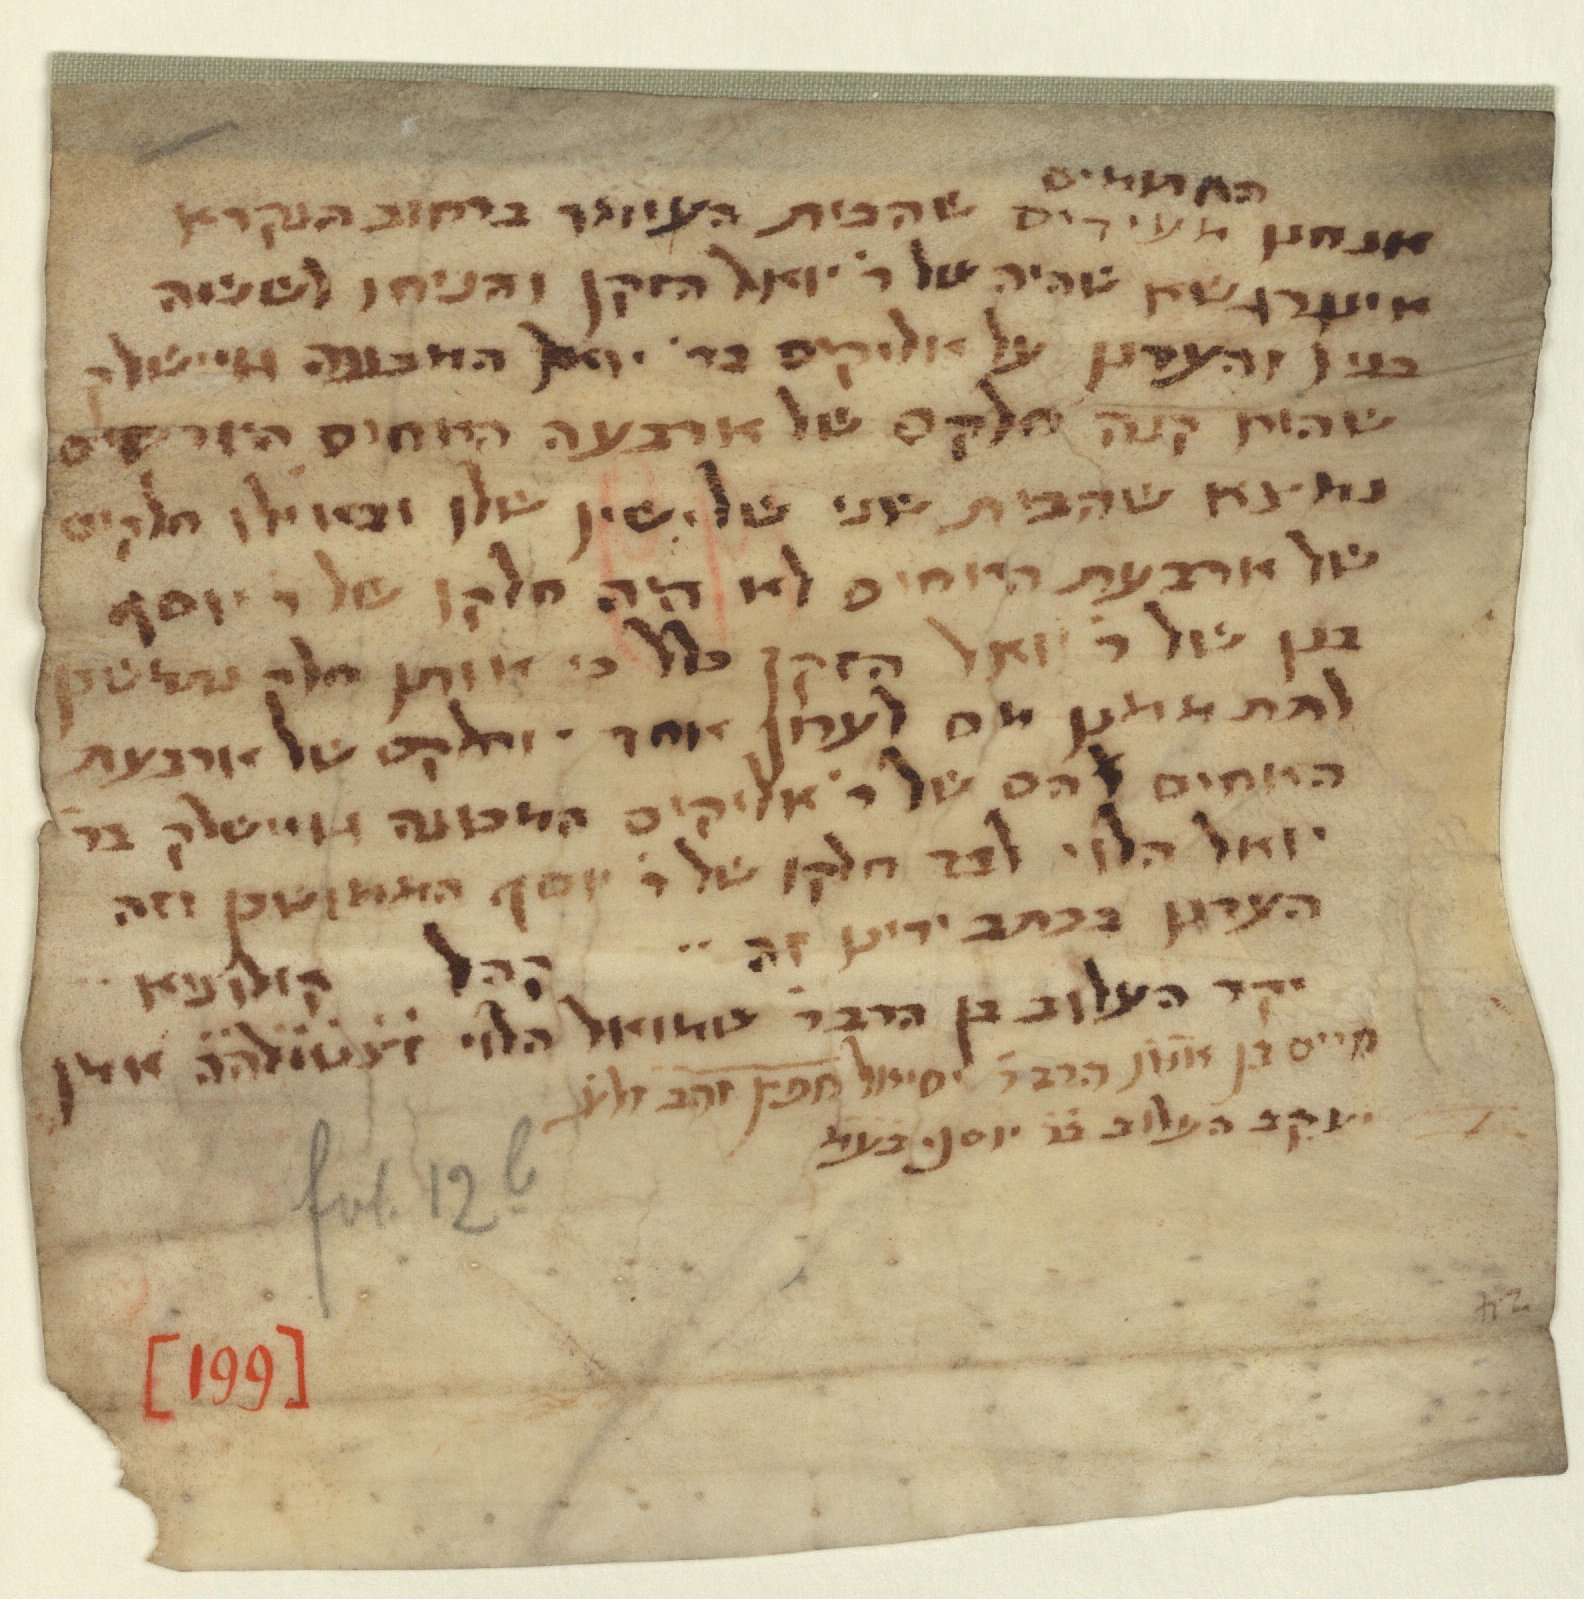 החתומים
אנחנו מעידים שהבית העומד ברחוב הנקרא
שהיה של ר' יואל הזקן והניחו לששה
בניו והעדנו על אליקים בר' יואל המכונה גוישלק
שהוא קנה חלקם של ארבעה האחים היורשים
נמצא שהבית שני שלישין שלו ובאילו חלקים
של ארבעת האחים לא היה חלקו של ר' יוסף
בנו של ר' יואל הזקן כלל כי אותו חלק
לתת ממנו מס לערון אחד וחלקם של ארבעת
האחים להם של ר' אליקים המכונה גוישלק בר'
יואל הלוי לבד חלקו של ר' יוסף וזה
העדנו בכתב ידינו זה
קהל קולוניא
יקר העלוב בן הרב ר' שמואל הלוי אמן
חיים בן הרב ר' יחיאל חפץ זהב זלע
יעקב העלוב בר יוסף
fol. 12 b
[199]